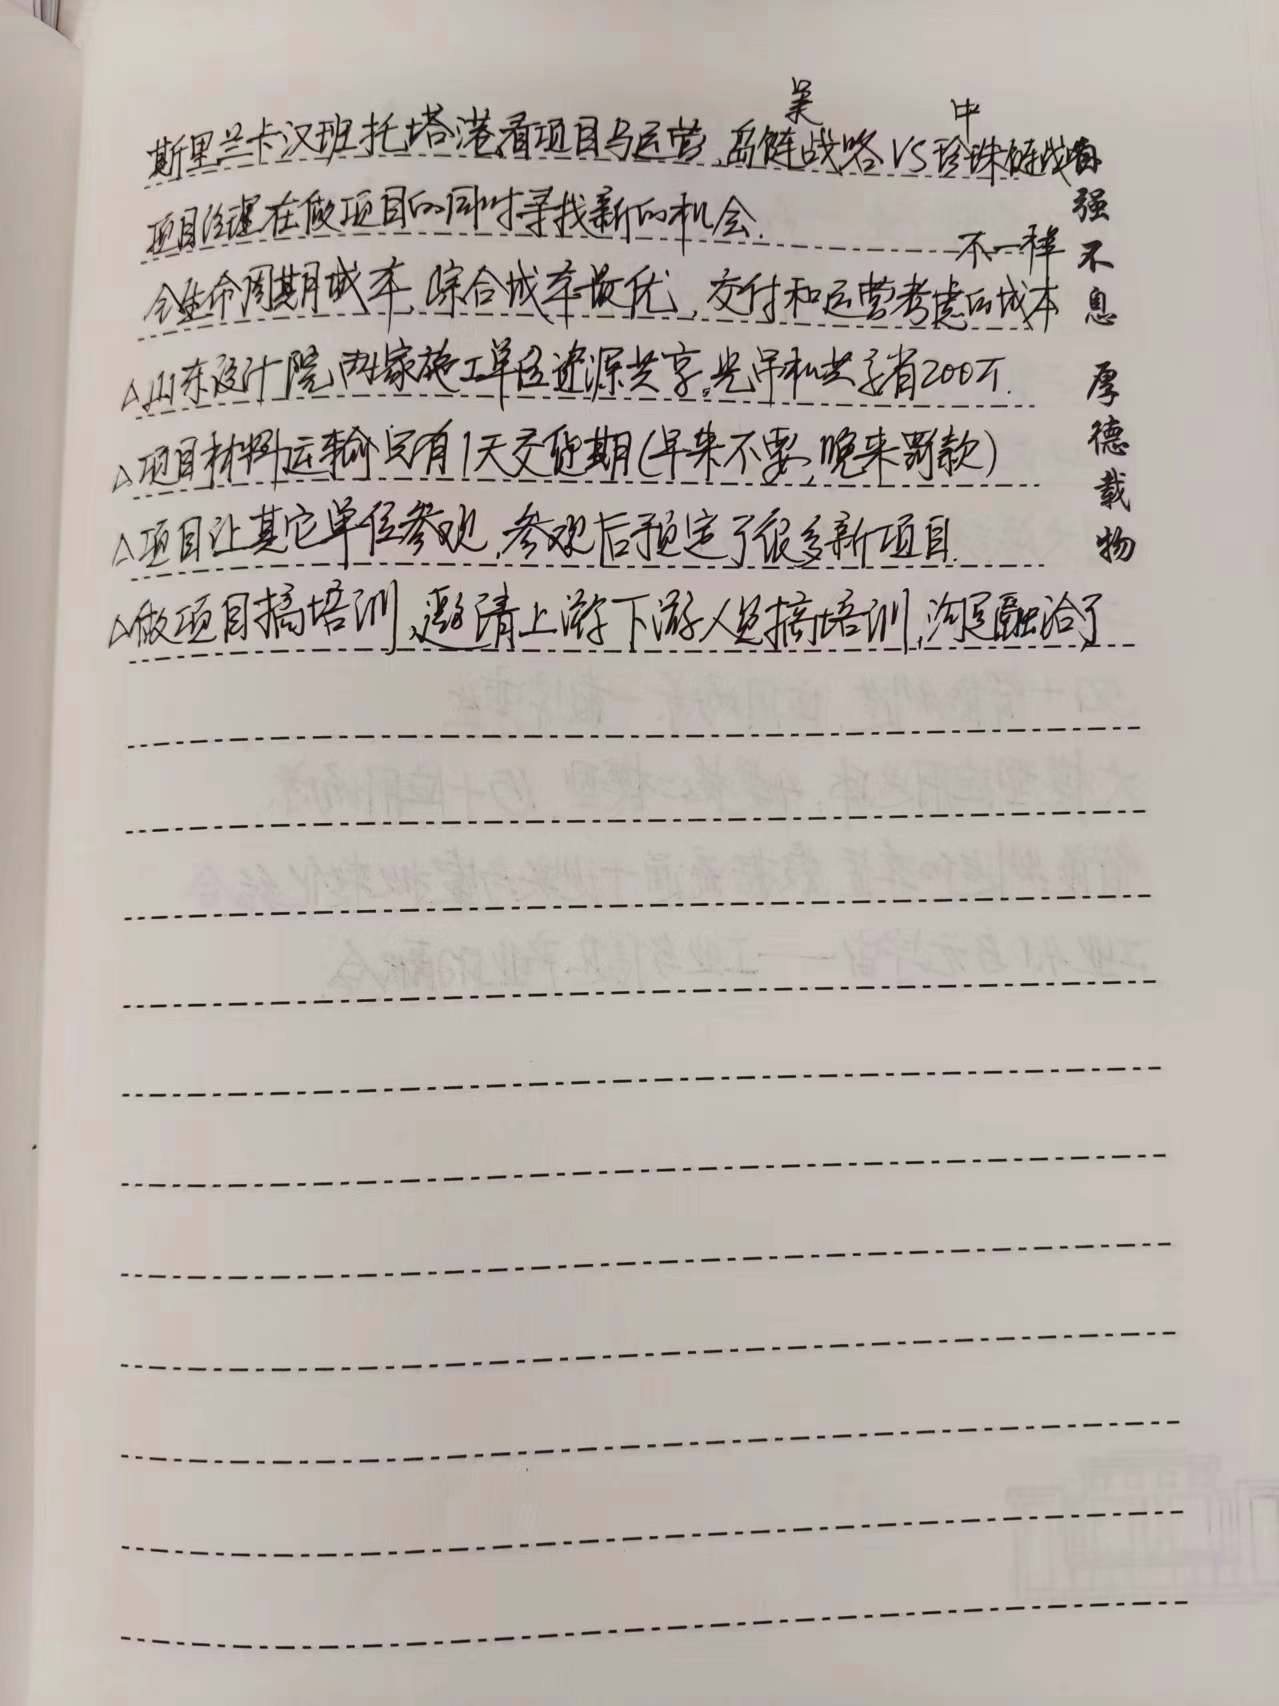 美 中
斯里兰卡汉班托塔港看项目与运营,岛链战略VS珍珠链战略
项目经理在做项目的同时寻找新的机会.
不一样
全生命周期成本,综合成本最优,交付和运营考虑的成本
△山东设计院,两家施工单位资源共享,光吊机共享省200万.
△项目材料运输只有1天交货期(早来不要,晚来罚款)
△项目让其它单位参观,参观后预定了很多新项目.
△做项目搞培训,邀请上游下游人员搞培训,沟通融洽了
自强不息 厚德载物